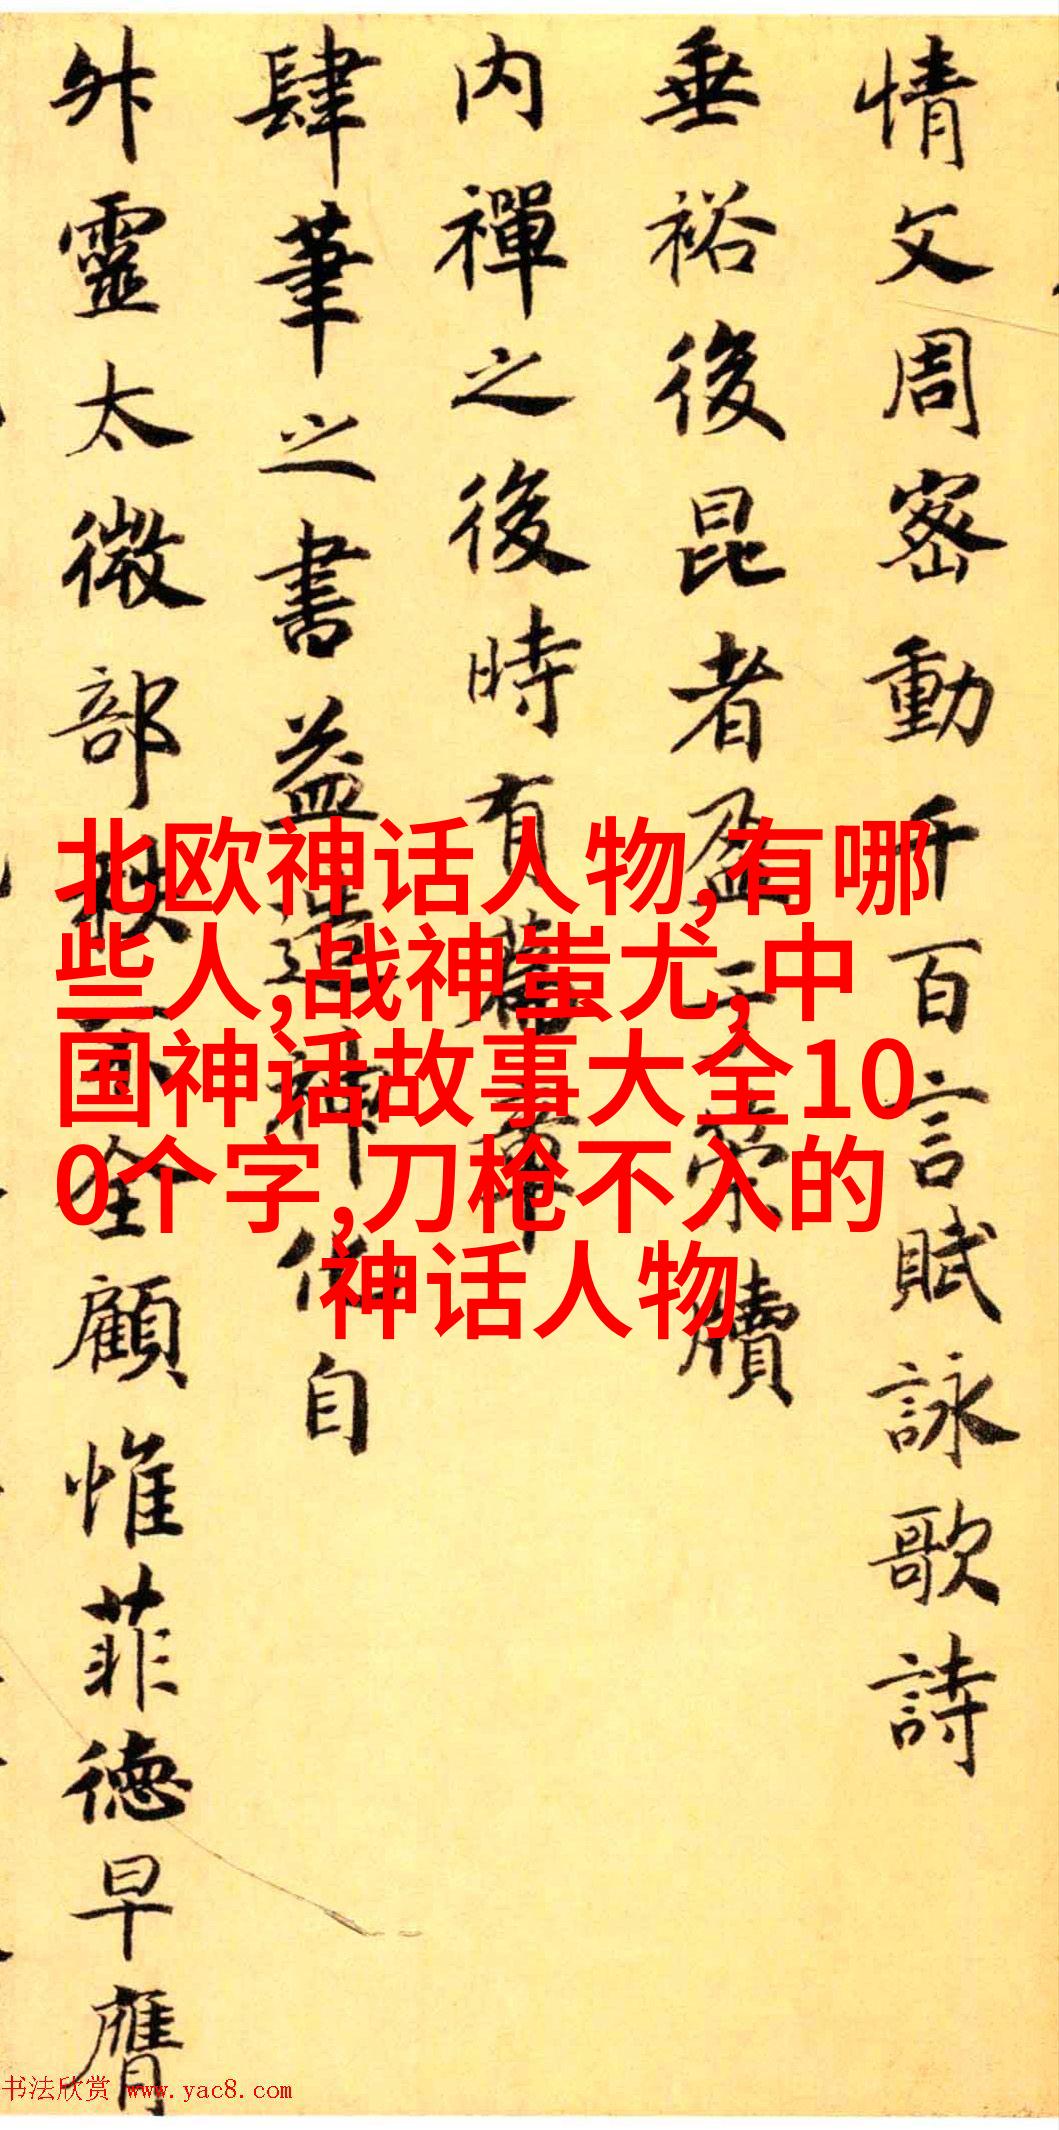 情文周密動千百言賦詠歌詩
垂裕後昆者盈
牘
内禪之後時有
肆筆之書益
神
自
外靈太微部
全顧惟菲德早膺
北欧神话人物,有哪
些人,战神蚩尤,中
国神话故事大全10
0个字,刀枪不入的
神话人物
书法欣赏 www.yac8.com